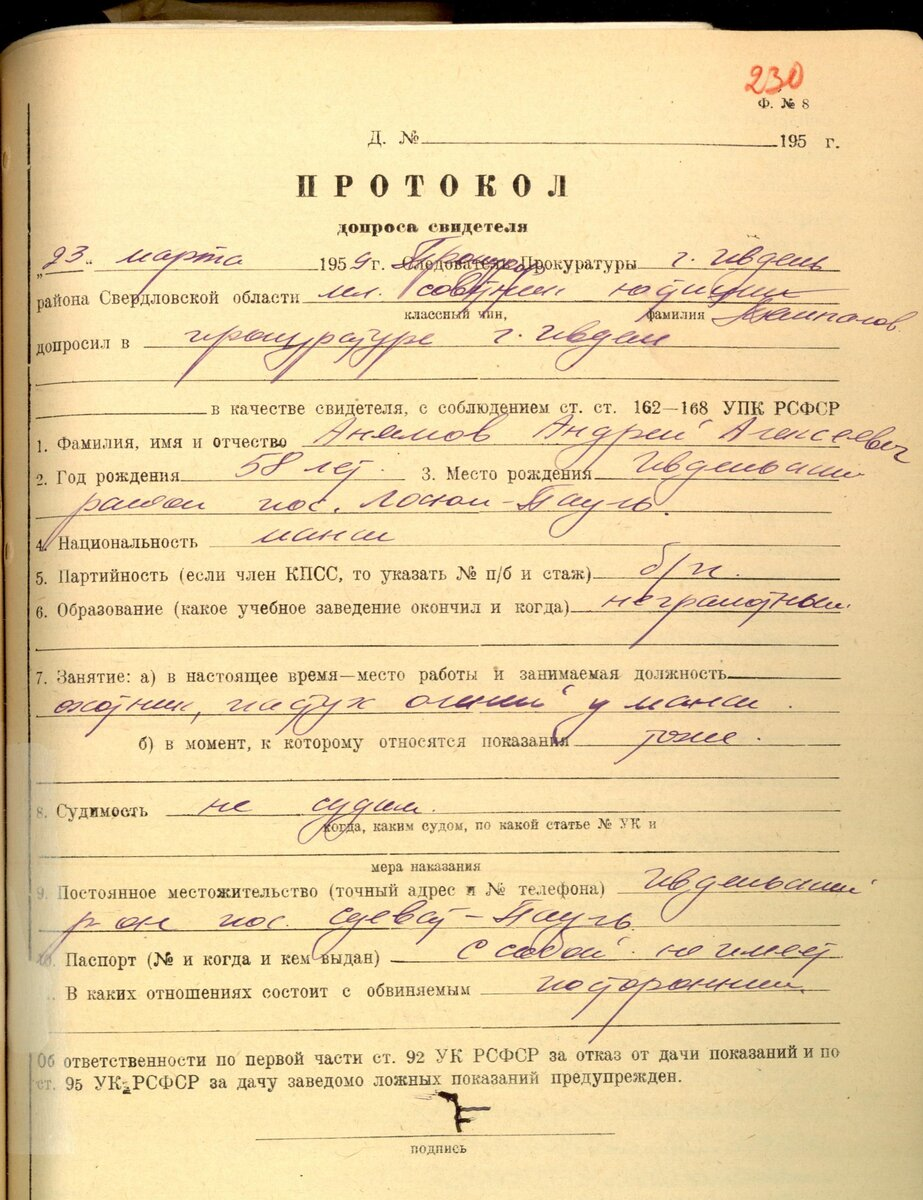 230
Ф. № 8
Д. № 195 г.
ПРОТОКОЛ
допроса свидетеля
„23“ марта 1959 г. Следователь Прокуратуры г. Ивдель
района Свердловской области мл. советник юстиции
классный чин, фамилия Темпалов.
допросил в прокуратуре г. Ивдель
в качестве свидетеля, с соблюдением ст. ст. 162—168 УПК РСФСР
1. Фамилия, имя и отчество Анямов Андрей Алексеевич
2. Год рождения 58 лет. 3. Место рождения Ивдельский
район пос. Лосюм-Пауль.
4. Национальность манси
5. Партийность (если член КПСС, то указать № п/б и стаж) б/п.
6. Образование (какое учебное заведение окончил и когда) неграмотный.
7. Занятие: а) в настоящее время—место работы и занимаемая должность
охотник, пастух оленей у манси.
б) в момент, к которому относятся показания тоже.
8. Судимость не судим.
когда, каким судом, по какой статье № УК и
мера наказания
9. Постоянное местожительство (точный адрес и № телефона) Ивдельский
р-он пос. Суеват-Пауль
10. Паспорт (№ и когда и кем выдан) с собой не имеет
В каких отношениях состоит с обвиняемым посторонний.
Об ответственности по первой части ст. 92 УК РСФСР за отказ от дачи показаний и по
ст. 95 УК РСФСР за дачу заведомо ложных показаний предупрежден.
подпись